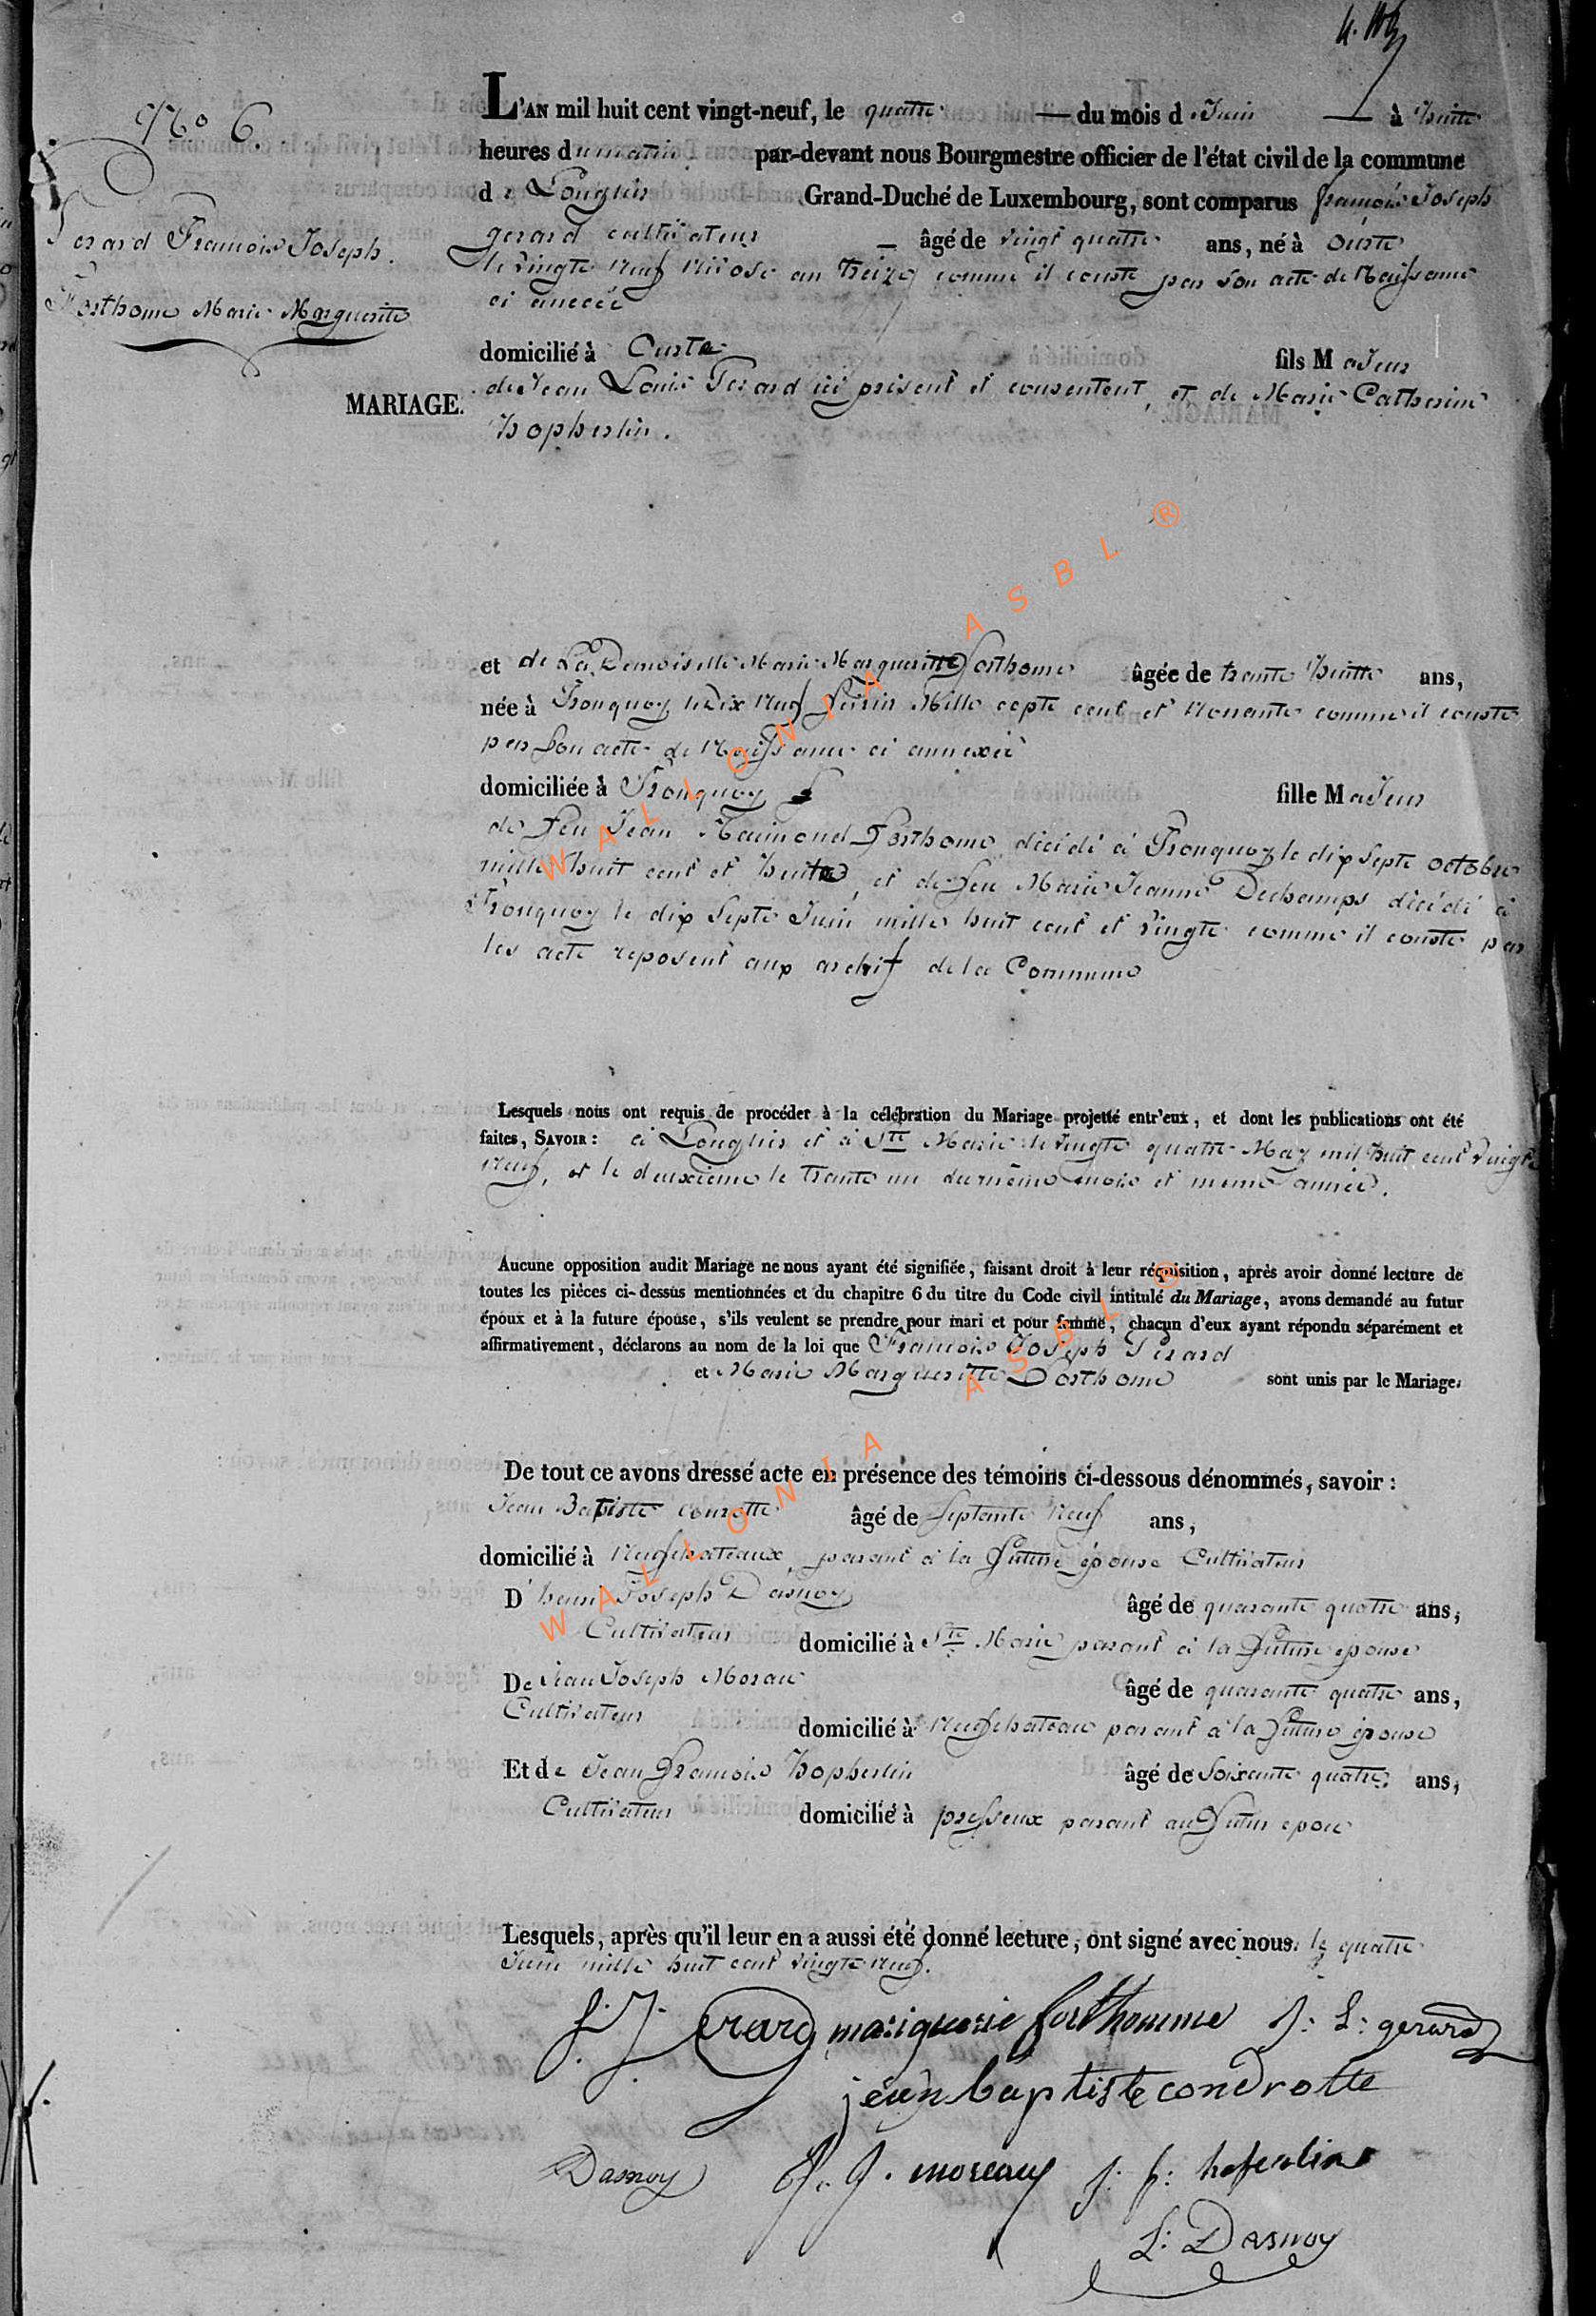 No 6
L'AN mil huit cent vingt-neuf, le quatre — du mois d Juin — à huitte
heures du matin par-devant nous Bourgmestre officier de l'état civil de la commune
de Longlier Grand-Duché de Luxembourg, sont comparus françois Joseph
gerard cultivateur — âgé de vingt quatre ans, né à Ourte
le vingte neuf Nivose an treize comme il conste par son acte de Naissance
ci
Gerard François Joseph.
Forthome Marie Marguerite
MARIAGE.
domicilié à Ourte fils Majeur
de Jean Louis Gerard ici présent et consentent, et de Marie Catherine
hopherlin.
et de La Demoiselle Marie Margueritte forthome âgée de trante huitte ans,
née à Tronquoy le Dix Neuf fevrier Mille cepte cent et Nonante comme il conste
par son acte de Naissance ci annexée
domiciliée à Tronquoy fille Majeur
de feu Jean Raimond Forthome décidé à Tronquoy le dix septe octobre
mille huit cent et huite, et de feu Marie Jeanne Dechamps décidé à
Tronquoy le dix septe Juin mille huit cent et vingte comme il conste par
les acte reposent aux archif de la Commune
Lesquels nous ont requis de procéder à la célébration du Mariage projetté entr'eux, et dont les publications ont été
faites, SAVOIR : à Longlier et à Ste Marie le vingte quatre May mil huit cent vingte
Neuf, et le deuxieme le trante un du même mois et meme année.
Aucune opposition audit Mariage ne nous ayant été signifiée, faisant droit à leur réquisition, après avoir donné lecture de
toutes les pièces ci-dessus mentionnées et du chapitre 6 du titre du Code civil intitulé du Mariage, avons demandé au futur
époux et à la future épouse, s'ils veulent se prendre pour mari et pour femme, chacun d'eux ayant répondu séparément et
affirmativement, déclarons au nom de la loi que François Joseph Gerard
et Marie Margueritte Forthome sont unis par le Mariage.
De tout ce avons dressé acte en présence des témoins ci-dessous dénommés, savoir :
Jean Batiste âgé de septante Neuf ans,
domicilié à Neufchateaux parant à la future épouse Cultivateur
D'henri Joseph Dasnoy âgé de quarante quatre ans,
Cultivateur domicilié à Ste Marie parant à la future epouse
De Jean Joseph Morau âgé de quarante quatre ans,
Cultivateur domicilié à Neufchateau parant à la future épouse
Et de Jean François hopherlin âgé de soixante quatre ans,
Cultivateur domicilié à parant au futur epoue
Lesquels, après qu'il leur en a aussi été donné lecture, ont signé avec nous. le quatre
Juin mille huit cent vingte neuf.
f. J. Gerard mariguerie forthomme J: L: gerard
jean baptiste condrotte
Dasnoy J. J. moreaux j: f: hoferlin
L: Dasnoy
WALLONIA ASBL ®
WALLONIA ASBL ®